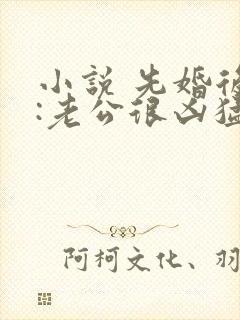 小說 先婚後
:老公很凶猛
阿柯文化、羽